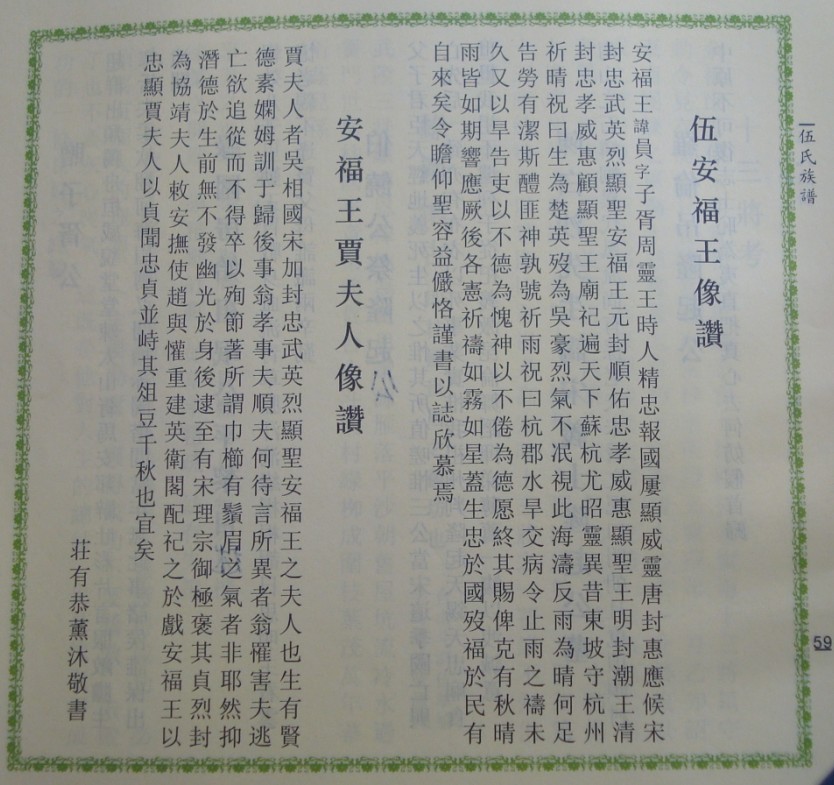 伍氏族譜
伍安福王像讚
安福王諱員字子胥周靈王時人精忠報國屢顯威靈唐封惠應候宋
封忠武英烈顯聖安福王元封順佑忠孝威惠顯聖王明封潮王清
封忠孝威惠顧顯聖王廟祀遍天下蘇杭尤昭靈異昔東坡守杭州
祈晴祝曰生為楚英歿為吳豪烈氣不泯視此海濤反雨為晴何足
告勞有潔斯醴匪神孰號祈雨祝曰杭郡水旱交病令止雨之禱未
久又以旱告吏以不德為愧神以不倦為德愿終其賜俾克有秋晴
雨皆如期響應厥後各憲祈禱如霧如星蓋生忠於國歿福於民有
自來矣令瞻仰聖容益儼恪謹書以誌欣慕焉
安福王賈夫人像讚
賈夫人者吳相國宋加封忠武英烈顯聖安福王之夫人也生有賢
德素嫻姆訓于歸後事翁孝事夫順夫何待言所異者翁罹害夫逃
亡欲追從而不得卒以殉節著所謂巾櫛有鬚眉之氣者非耶然抑
潛德於生前無不發幽光於身後逮至有宋理宗御極褒其貞烈封
為協靖夫人敕安撫使趙與懽重建英衛閣配祀之於戲安福王以
忠顯賈夫人以貞聞忠貞並峙其俎豆千秋也宜矣
莊有恭薰沐敬書
59